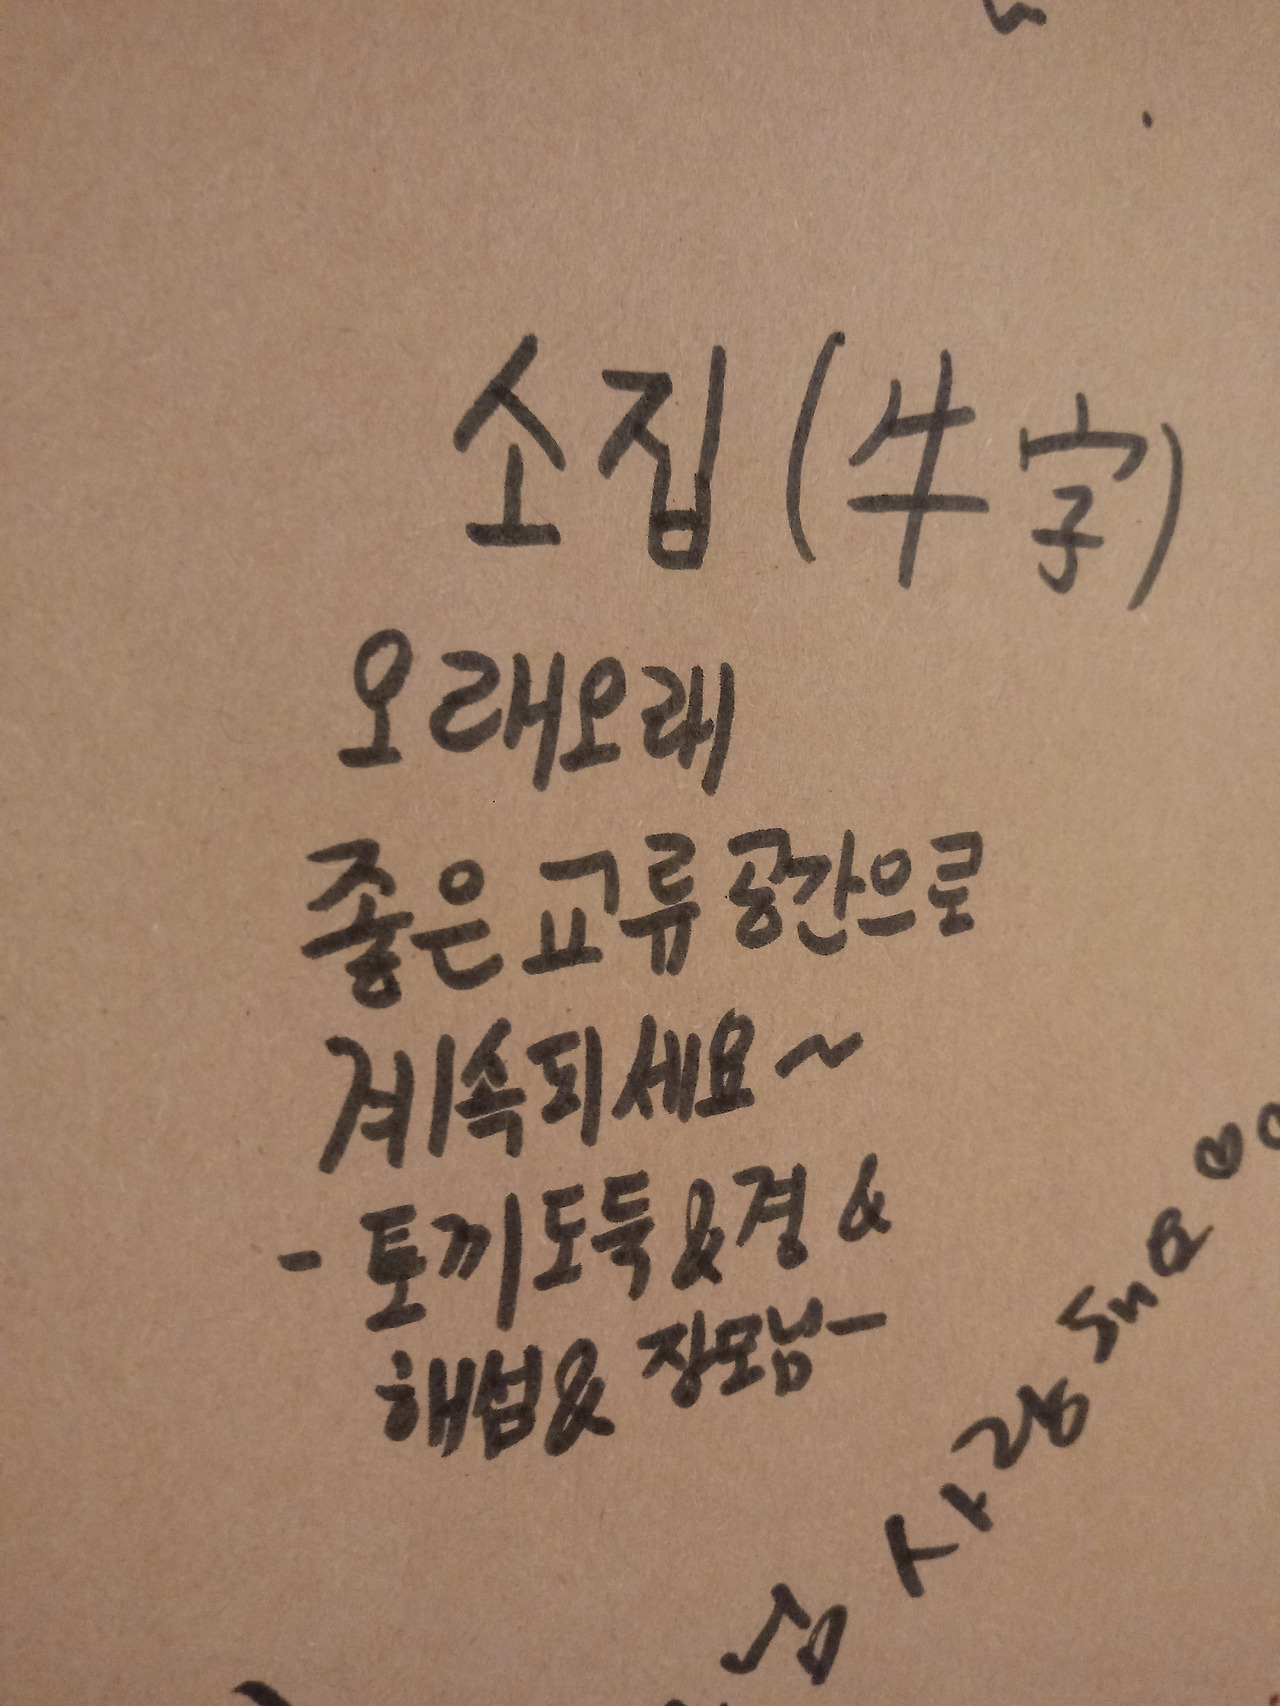 소집 (牛字)
오래오래
좋은 교류 공간으로
계속되세요~
- 토끼도둑&경&
해섭& 장모님-
사랑해요♡